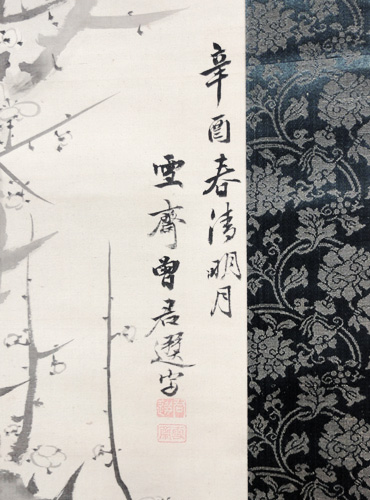 辛酉春清明月
雪齋曾君選寫